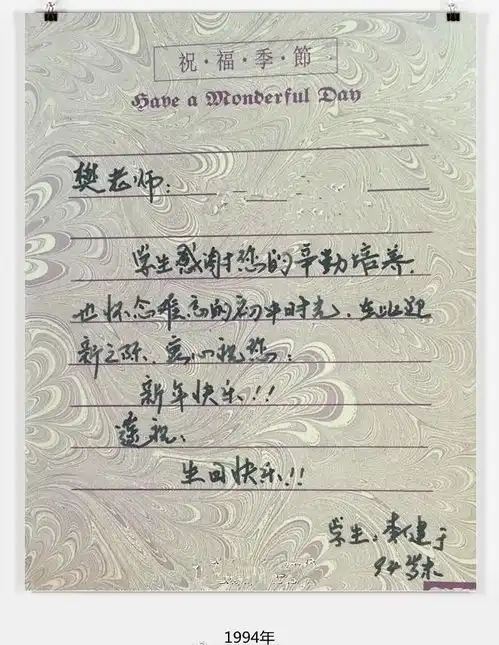 祝·福·季·節
Have a Wonderful Day
樊老师：
学生感谢您的辛勤培养，
也怀念难忘的初中时光，在此迎
新之际，衷心祝您：
新年快乐!!
遥祝、
生日快乐!!
学生：李健
1994年